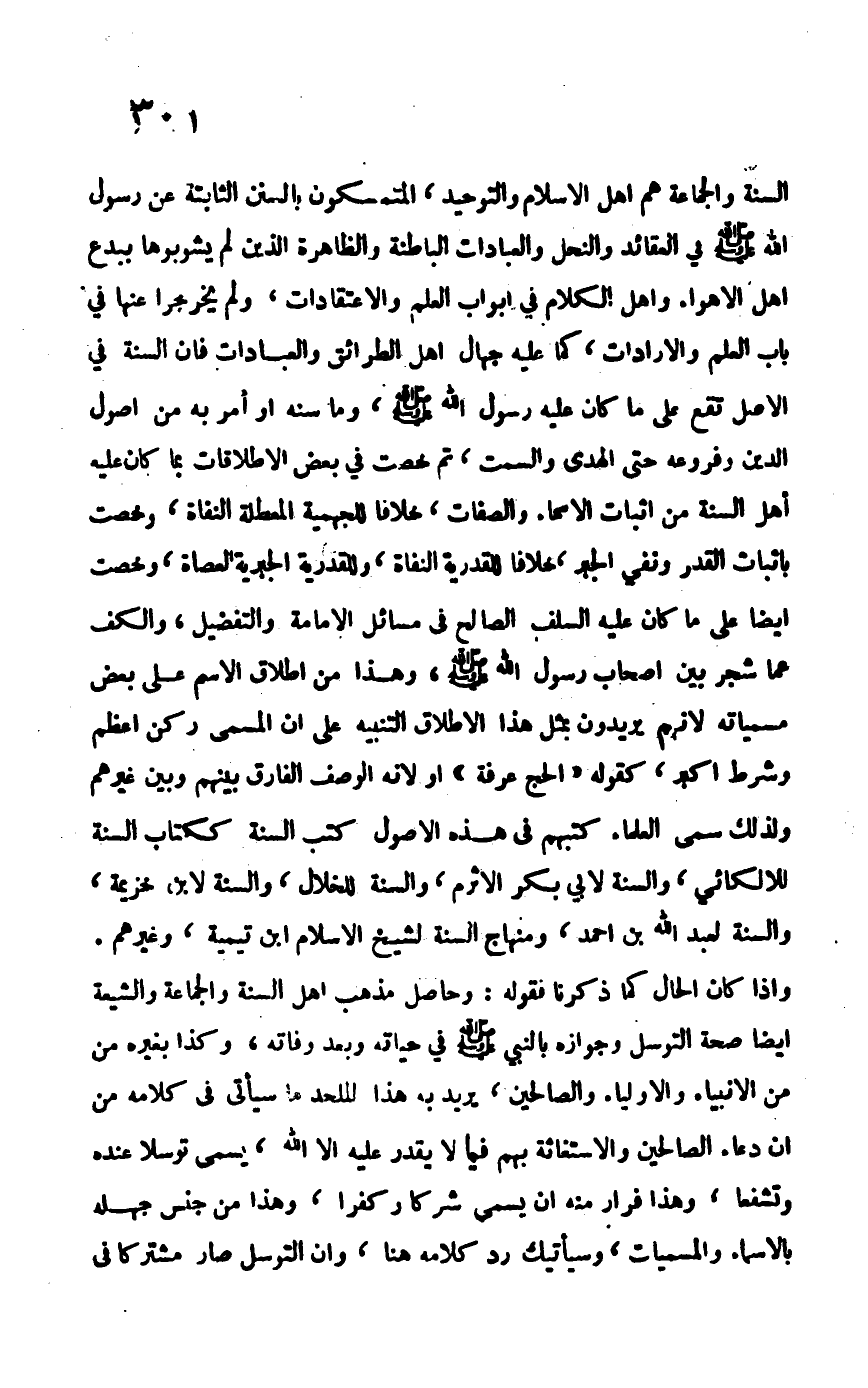 ٣٠١
السنة والجماعة هم اهل الاسلام والتوحيد ، المتمسكون بالسنن الثابتة عن رسول
الله ﷺ في العقائد والنحل والعبادات الباطنة والظاهرة الذين لم يشوبوها ببدع
اهل الاهواء واهل الكلام في ابواب العلم والاعتقادات ، ولم يخرجوا عنها في
باب العلم والارادات ، كما عليه جهال اهل الطرائق والعبادات فان السنة في
الاصل تقع على ما كان عليه رسول الله ﷺ ، وما سنه او أمر به من اصول
الدين وفروعه حتى الهدى والسمت ، ثم خصت في بعض الاطلاقات بما كان عليه
أهل السنة من اثبات الاسماء والصفات ، خلافا للجهمية المعطلة النفاة ، وخصت
باثبات القدر ونفي الجبر ، خلافا للقدرية النفاة ، وللقدرية الجبرية العصاة ، وخصت
ايضا على ما كان عليه السلف الصالح فى مسائل الإمامة والتفضيل ، والكف
عما شجر بين اصحاب رسول الله ﷺ ، وهذا من اطلاق الاسم على بعض
مسمياته لانهم يريدون بمثل هذا الاطلاق التنبيه على ان المسمى ركن اعظم
وشرط اكبر ، كقوله « الحج عرفة » او لانه الوصف الفارق بينهم وبين غيرهم
ولذلك سمى العلماء كتبهم فى هذه الاصول كتب السنة ككتاب السنة
للالكائي ، والسنة لابي بكر الاثرم ، والسنة للخلال ، والسنة لابن خزيمة ،
والسنة لعبد الله بن احمد ، ومنهاج السنة لشيخ الاسلام ابن تيمية ، وغيرهم .
واذا كان الحال كما ذكرنا فقوله : وحاصل مذهب اهل السنة والجماعة والشيعة
ايضا صحة التوسل وجوازه بالنبي ﷺ في حياته وبعد وفاته ، وكذا بغيره من
من الانبياء والاولياء والصالحين ، يريد به هذا الملحد ما سيأتى فى كلامه من
ان دعاء الصالحين والاستغاثة بهم فيما لا يقدر عليه الا الله ، يسمى توسلا عنده
وتشفعا ، وهذا فرار منه ان يسمي شركا وكفرا ، وهذا من جنس جهله
بالاسماء والمسميات ، وسيأتيك رد كلامه هنا ، وان التوسل صار مشتركا فى